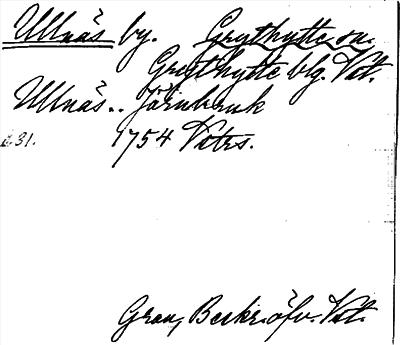 Ullnäs by. Grythytte sn.
Grythytte blg. Vstl.
Ullnäs.. Järnbruk
s. 31. 1754 Vstrs.
Grau, Beskr. öfv. Vstl.